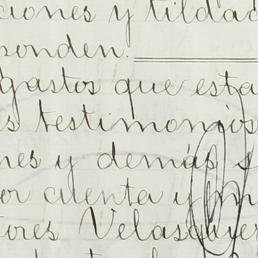 ciones y tildad
ponden.
gastos que esta
s testimonios
nes y demás s
or cuenta y m
tores Velasquez